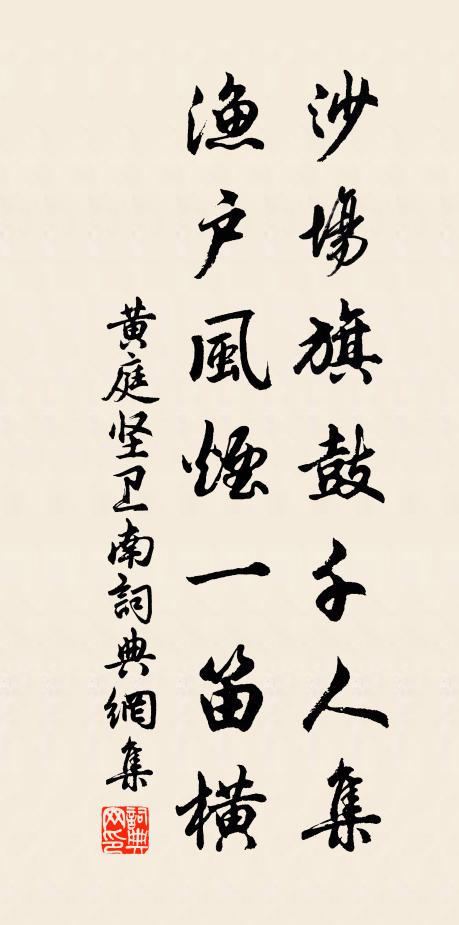 沙場旗鼓千人集
漁戶風煙一笛橫
黄庭坚卫南詞典網集
詞典網印